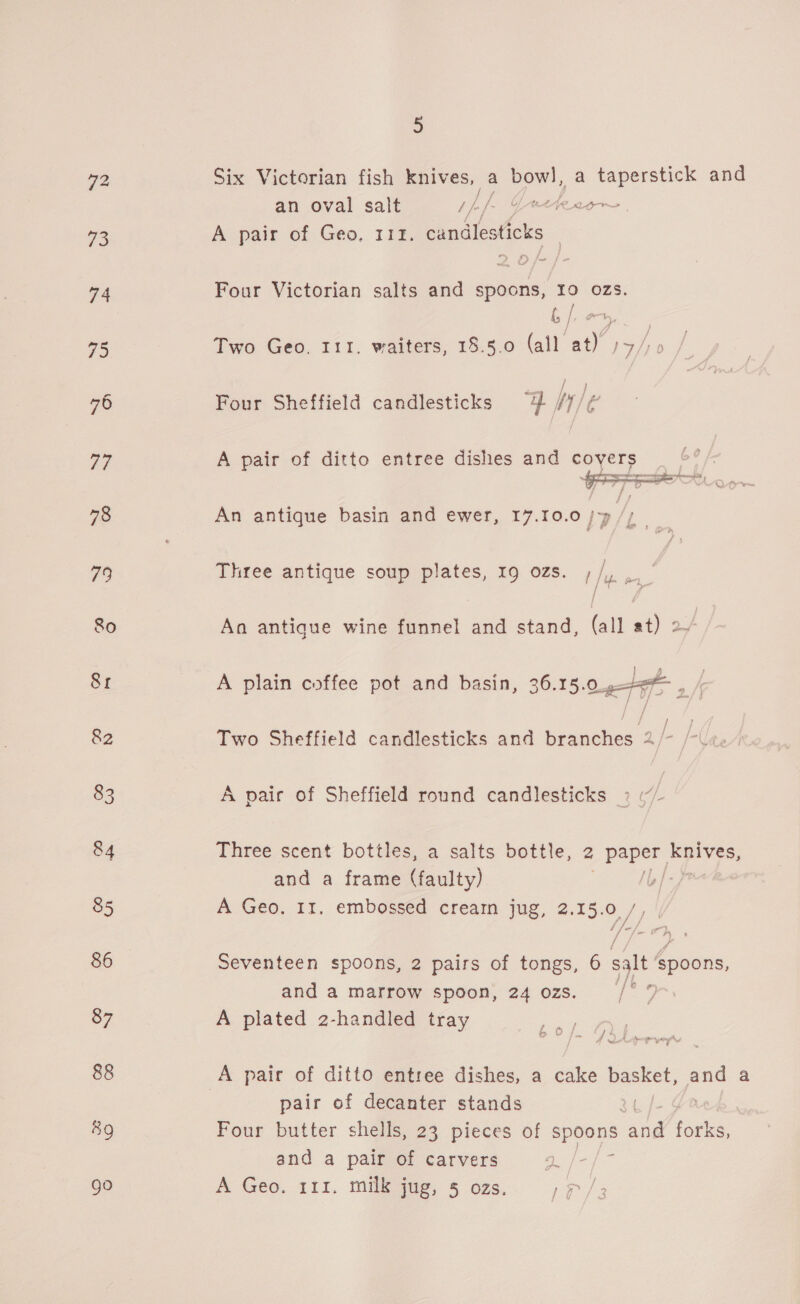 5
72 Six Victorian fish knives, a bowl, a taperstick and
an oval salt
73 A pair of Geo. III. candlesticks
20/-/-
74 Four Victorian salts and spoons, 10 ozs.
75 Two Geo. III. waiters, 18.5.0 (all at)
76 Four Sheffield candlesticks
77 A pair of ditto entree dishes and covers
78 An antique basin and ewer, 17.10.0
79 Three antique soup plates, 19 ozs.
80 An antique wine funnel and stand, (all at)
81 A plain coffee pot and basin, 36.15.0
82 Two Sheffield candlesticks and branches
83 A pair of Sheffield round candlesticks
84 Three scent bottles, a salts bottle, 2 paper knives,
and a frame (faulty)
85 A Geo. II. embossed cream jug, 2.15.0
86 Seventeen spoons, 2 pairs of tongs, 6 salt spoons,
and a marrow spoon, 24 ozs.
87 A plated 2-handled tray
88 A pair of ditto entree dishes, a cake basket, and a
pair of decanter stands
89 Four butter shells, 23 pieces of spoons and forks,
and a pair of carvers 2/-/-
90 A Geo. III. milk jug, 5 ozs.